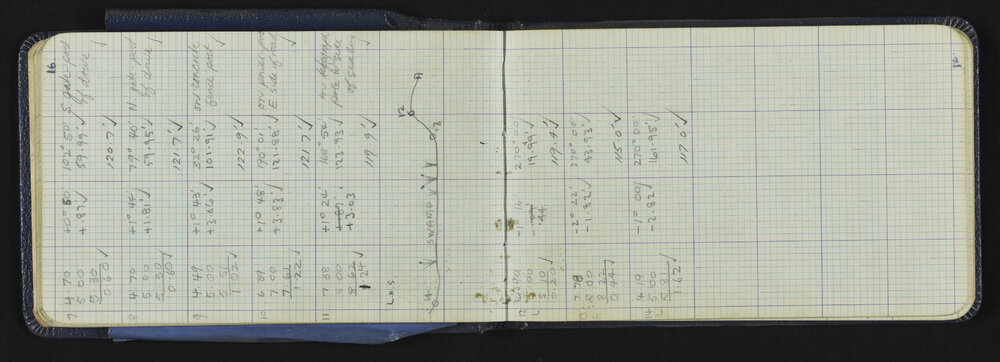 16.
7 4.70 +0° 50' 102° 50' S gate post
5.00 +.87' ✓ 59.99' ✓ of drive ✓
5.30
0.60 ✓ 120.7' ✓
8 4.70 +1° 44' 79° 40' N gate post
5.00 +1.81' ✓ 59.95' ✓ of drive ✓
5.30
0.60 ✓ 121.7' ✓
9 4.49 +1° 43' 32° 26' on concrete
5.00 +3.06' ✓ 101.91' ✓ fence post ✓
5.51
1.02 ✓ 122.9' ✓
10 6.39 +1° 48' 170° 01' on power pole
7.00 +3.83' ✓ 121.88' ✓ E side of road
7.61
1.22 ✓ 121.7' ✓
11 7.38 +1° 24' 168° 52'
8.00 +3.03 123.93' ✓ pole W side
8.62
1.24 ✓ 119.9' ✓
L.H.S.
14 SWAMP 13 12 11
12 270° 00'
L 5.00 .44 19.99' ✓
5.10
0.20 ✓ 119.4' ✓
13 7.78 -2° 22' 270° 00'
L 8.00 -1.82' ✓ 43.93' ✓
8.22
0.44 ✓ 115.0' ✓
14 4.19 -1° 00' 270° 00'
L 5.00 -2.82' ✓ 161.95' ✓
5.81
1.62 ✓ 117.0' ✓